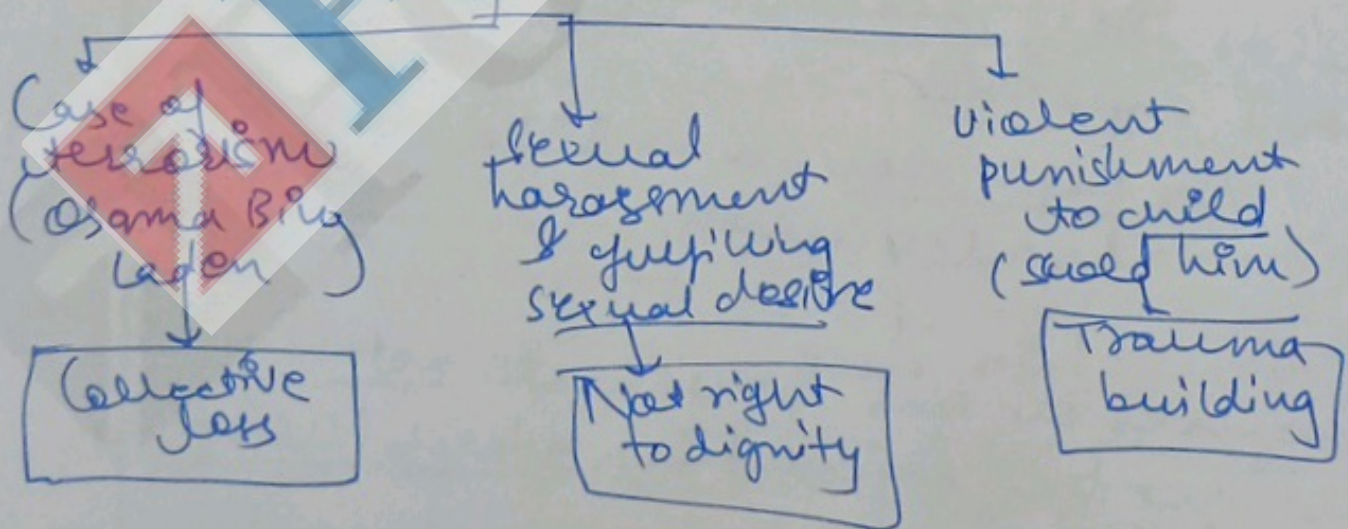 Case of
terrorism
(Osama Bin
Laden)
Collective
loss
Sexual
harassment
& fulfilling
sexual desire
Not right
to dignity
Violent
punishment
to child
(scold him)
Trauma
building